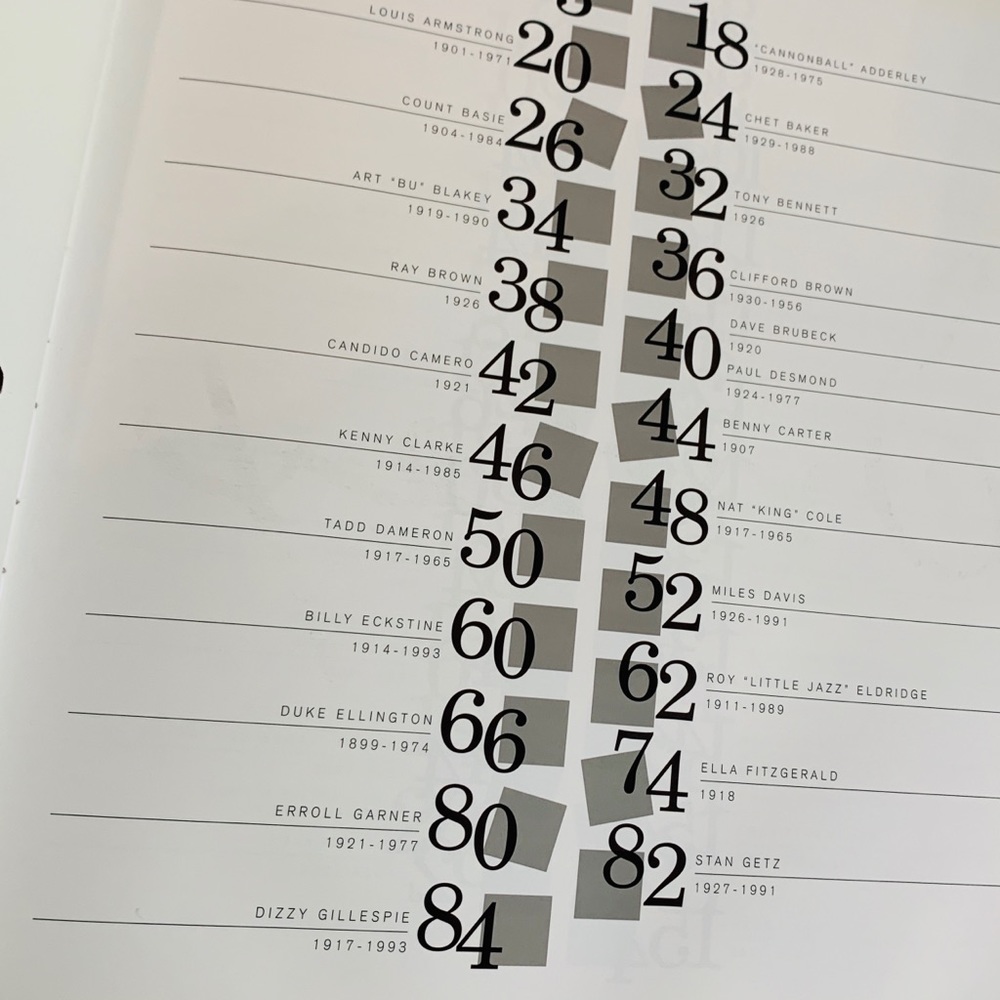 LOUIS ARMSTRONG
1901-1971
20
18
"CANNONBALL" ADDERLEY
1928-1975
COUNT BASIE
1904-1984
26
24
CHET BAKER
1929-1988
ART "BU" BLAKEY
1919-1990
34
32
TONY BENNETT
1926
RAY BROWN
1926
38
36
CLIFFORD BROWN
1930-1956
40
DAVE BRUBECK
1920
PAUL DESMOND
1924-1977
CANDIDO CAMERO
1921
42
44
BENNY CARTER
1907
KENNY CLARKE
1914-1985
46
48
NAT "KING" COLE
1917-1965
TADD DAMERON
1917-1965
50
52
MILES DAVIS
1926-1991
BILLY ECKSTINE
1914-1993
60
62
ROY "LITTLE JAZZ" ELDRIDGE
1911-1989
DUKE ELLINGTON
1899-1974
66
74
ELLA FITZGERALD
1918
ERROLL GARNER
1921-1977
80
82
STAN GETZ
1927-1991
DIZZY GILLESPIE
1917-1993
84